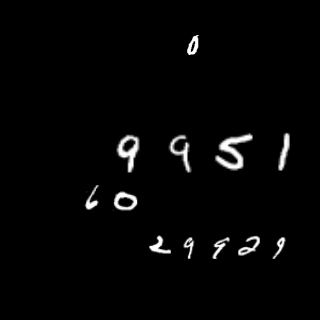 0
9951
60
29929